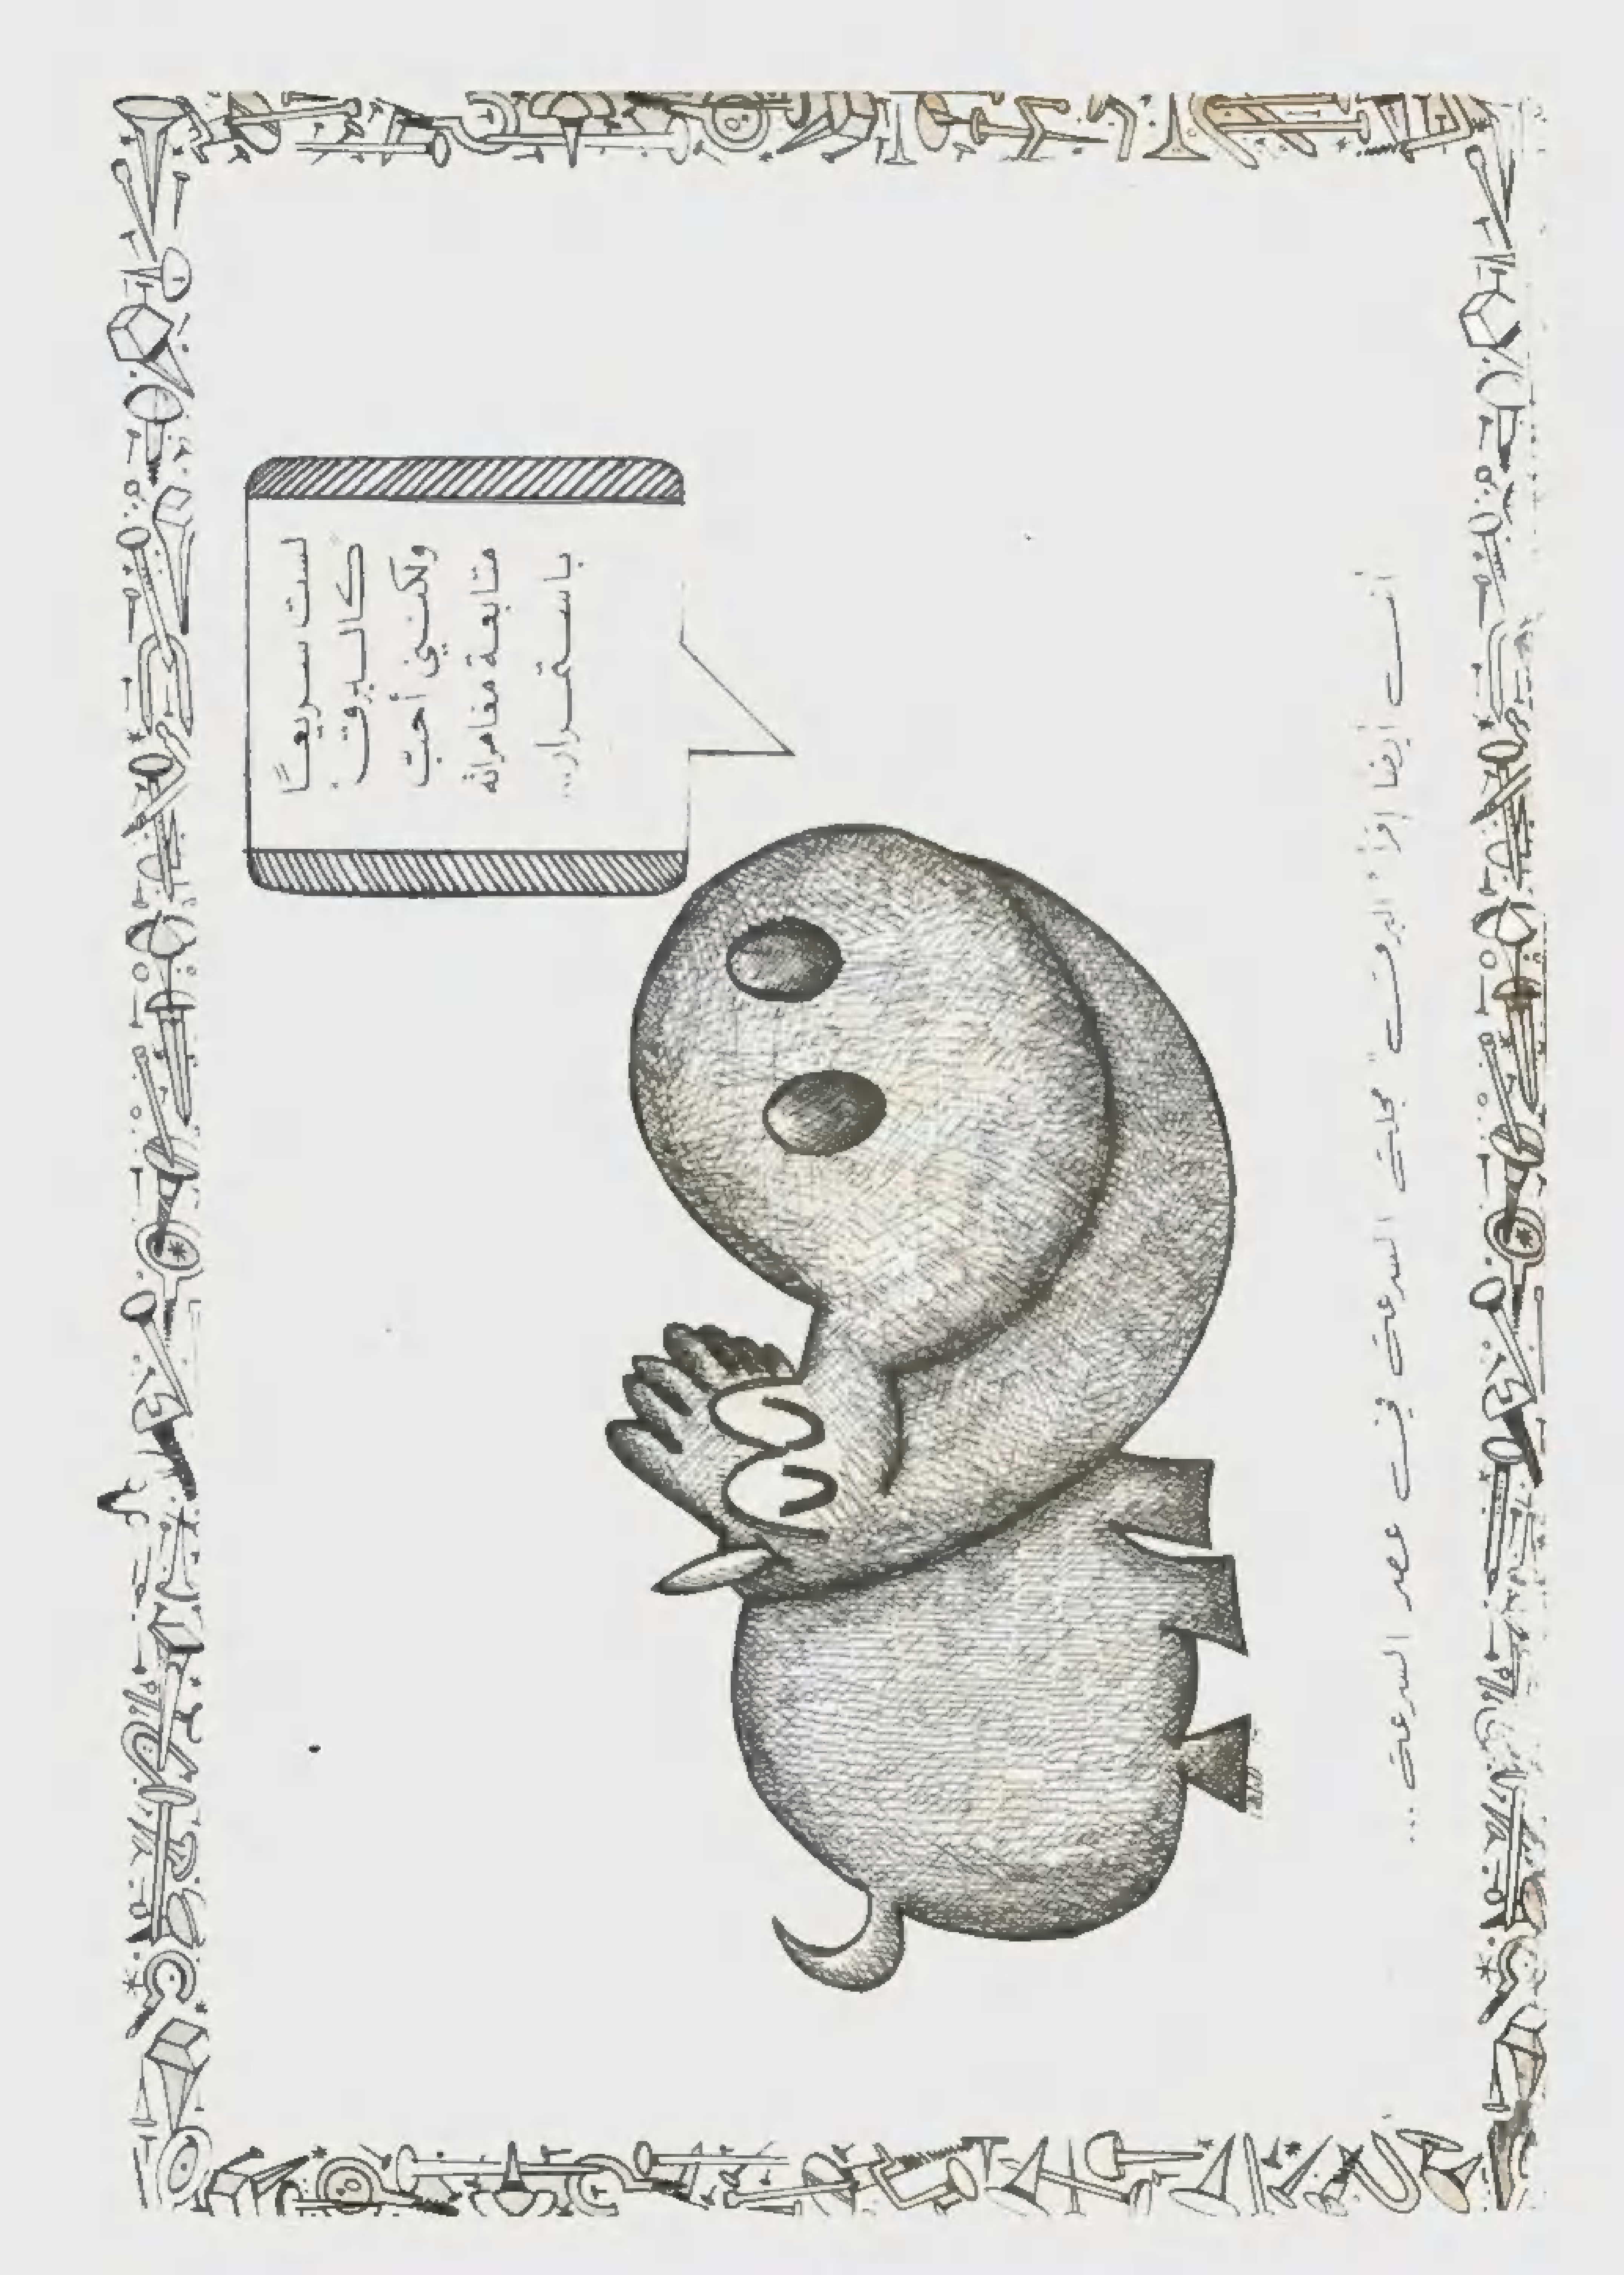 لست سريعاً
كالبرق
ولكنني أحب
متابعة مغامراته
باستمرار...
أنت أيضا إقرأ "البرق" مجلة السرعة في عصر السرعة...